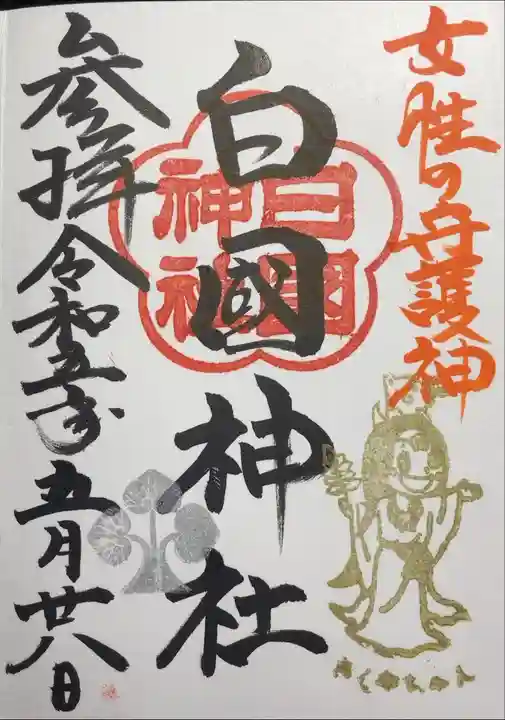 女性の守護神
白國神社
白國
神社
参拝 令和五年 五月廿八日